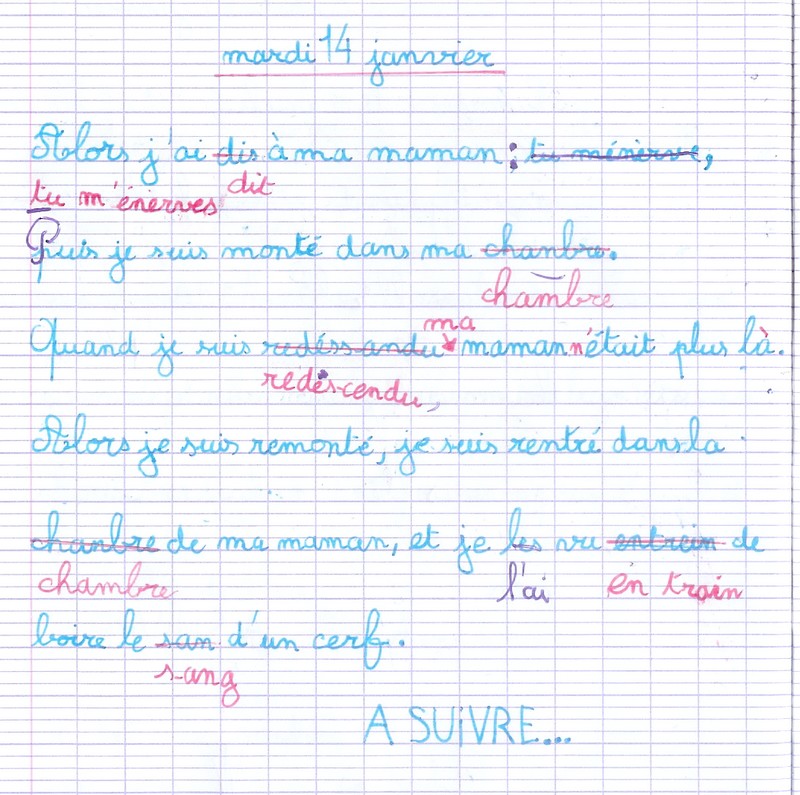 mardi 14 janvier
Alors j'ai dis à ma maman : tu ménerve,
tu m'énerves dit
Puis je suis monté dans ma chanbre.
chambre
ma
Quand je suis redéssandu maman n'était plus là.
redescendu,
Alors je suis remonté, je suis rentré dans la
chanbre de ma maman, et je les vu entrein de
chambre l'ai en train
boire le san d'un cerf.
sang
A SUiVRE...